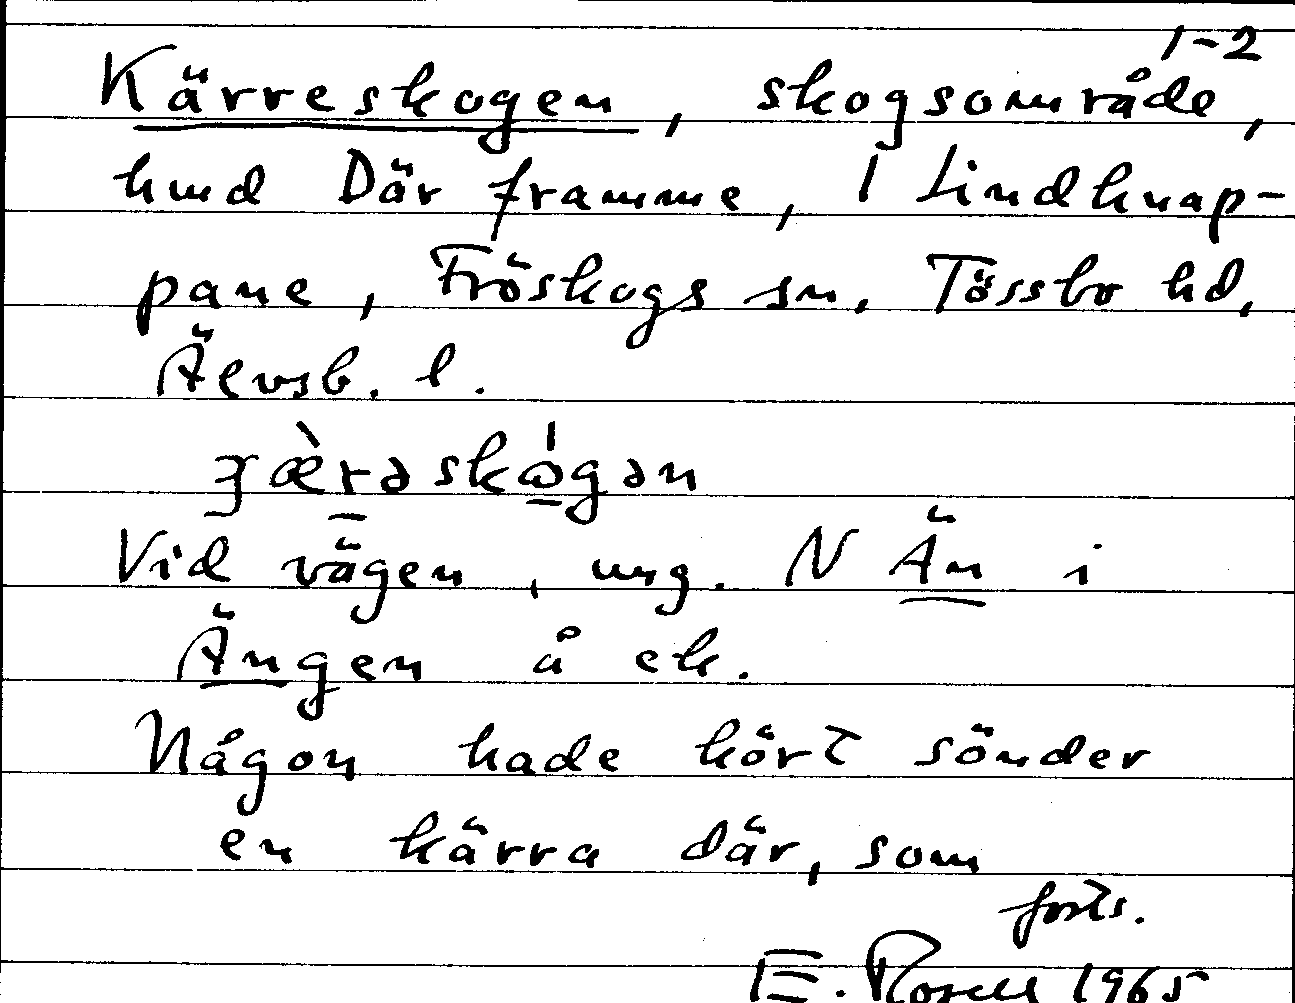 1-2
Kärreskogen, skogsområde,
hmd Där framme, 1 Lindknap-
pane, Fröskogs sn. Tössbo hd,
Älvsb. l.
ʒæ̀rəskǫ́gən
Vid vägen, ung. N Än i
Ängen å ek.
Någon hade kört sönder
en kärra där, som
forts.
E. Rosell 1965